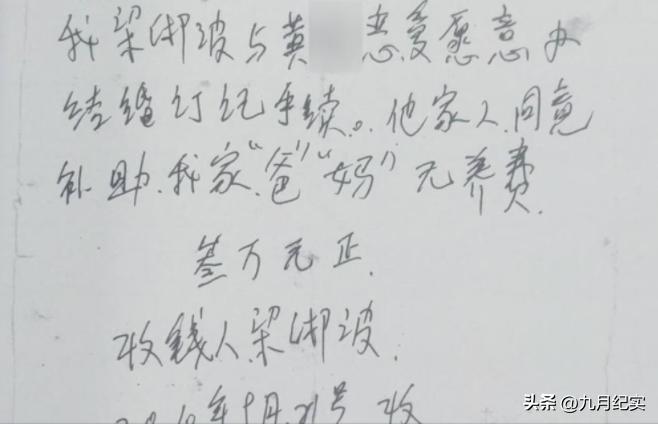 我梁绑波与黄 恋爱愿意办
结婚订记手续。他家人同意
补助.我家“爸”“妈”元养费.
叁万元正.
收钱人梁绑波.
年 月21号 收
头条 @九月纪实